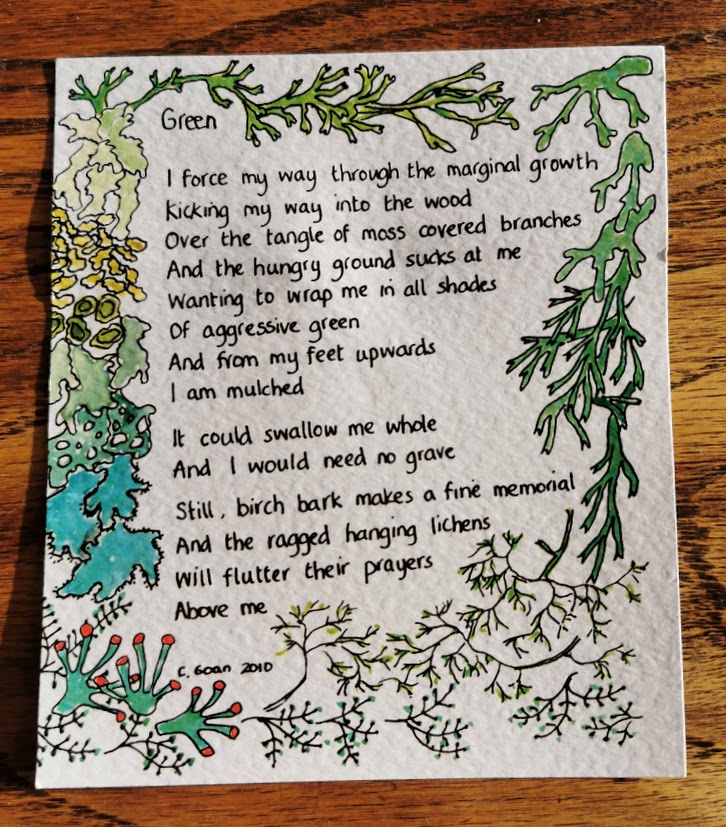 Green
I force my way through the marginal growth
Kicking my way into the wood
Over the tangle of moss covered branches
And the hungry ground sucks at me
Wanting to wrap me in all shades
Of aggressive green
And from my feet upwards
I am mulched
It could swallow me whole
And I would need no grave
Still, birch bark makes a fine memorial
And the ragged hanging lichens
Will flutter their prayers
Above me
C. Goan 2010